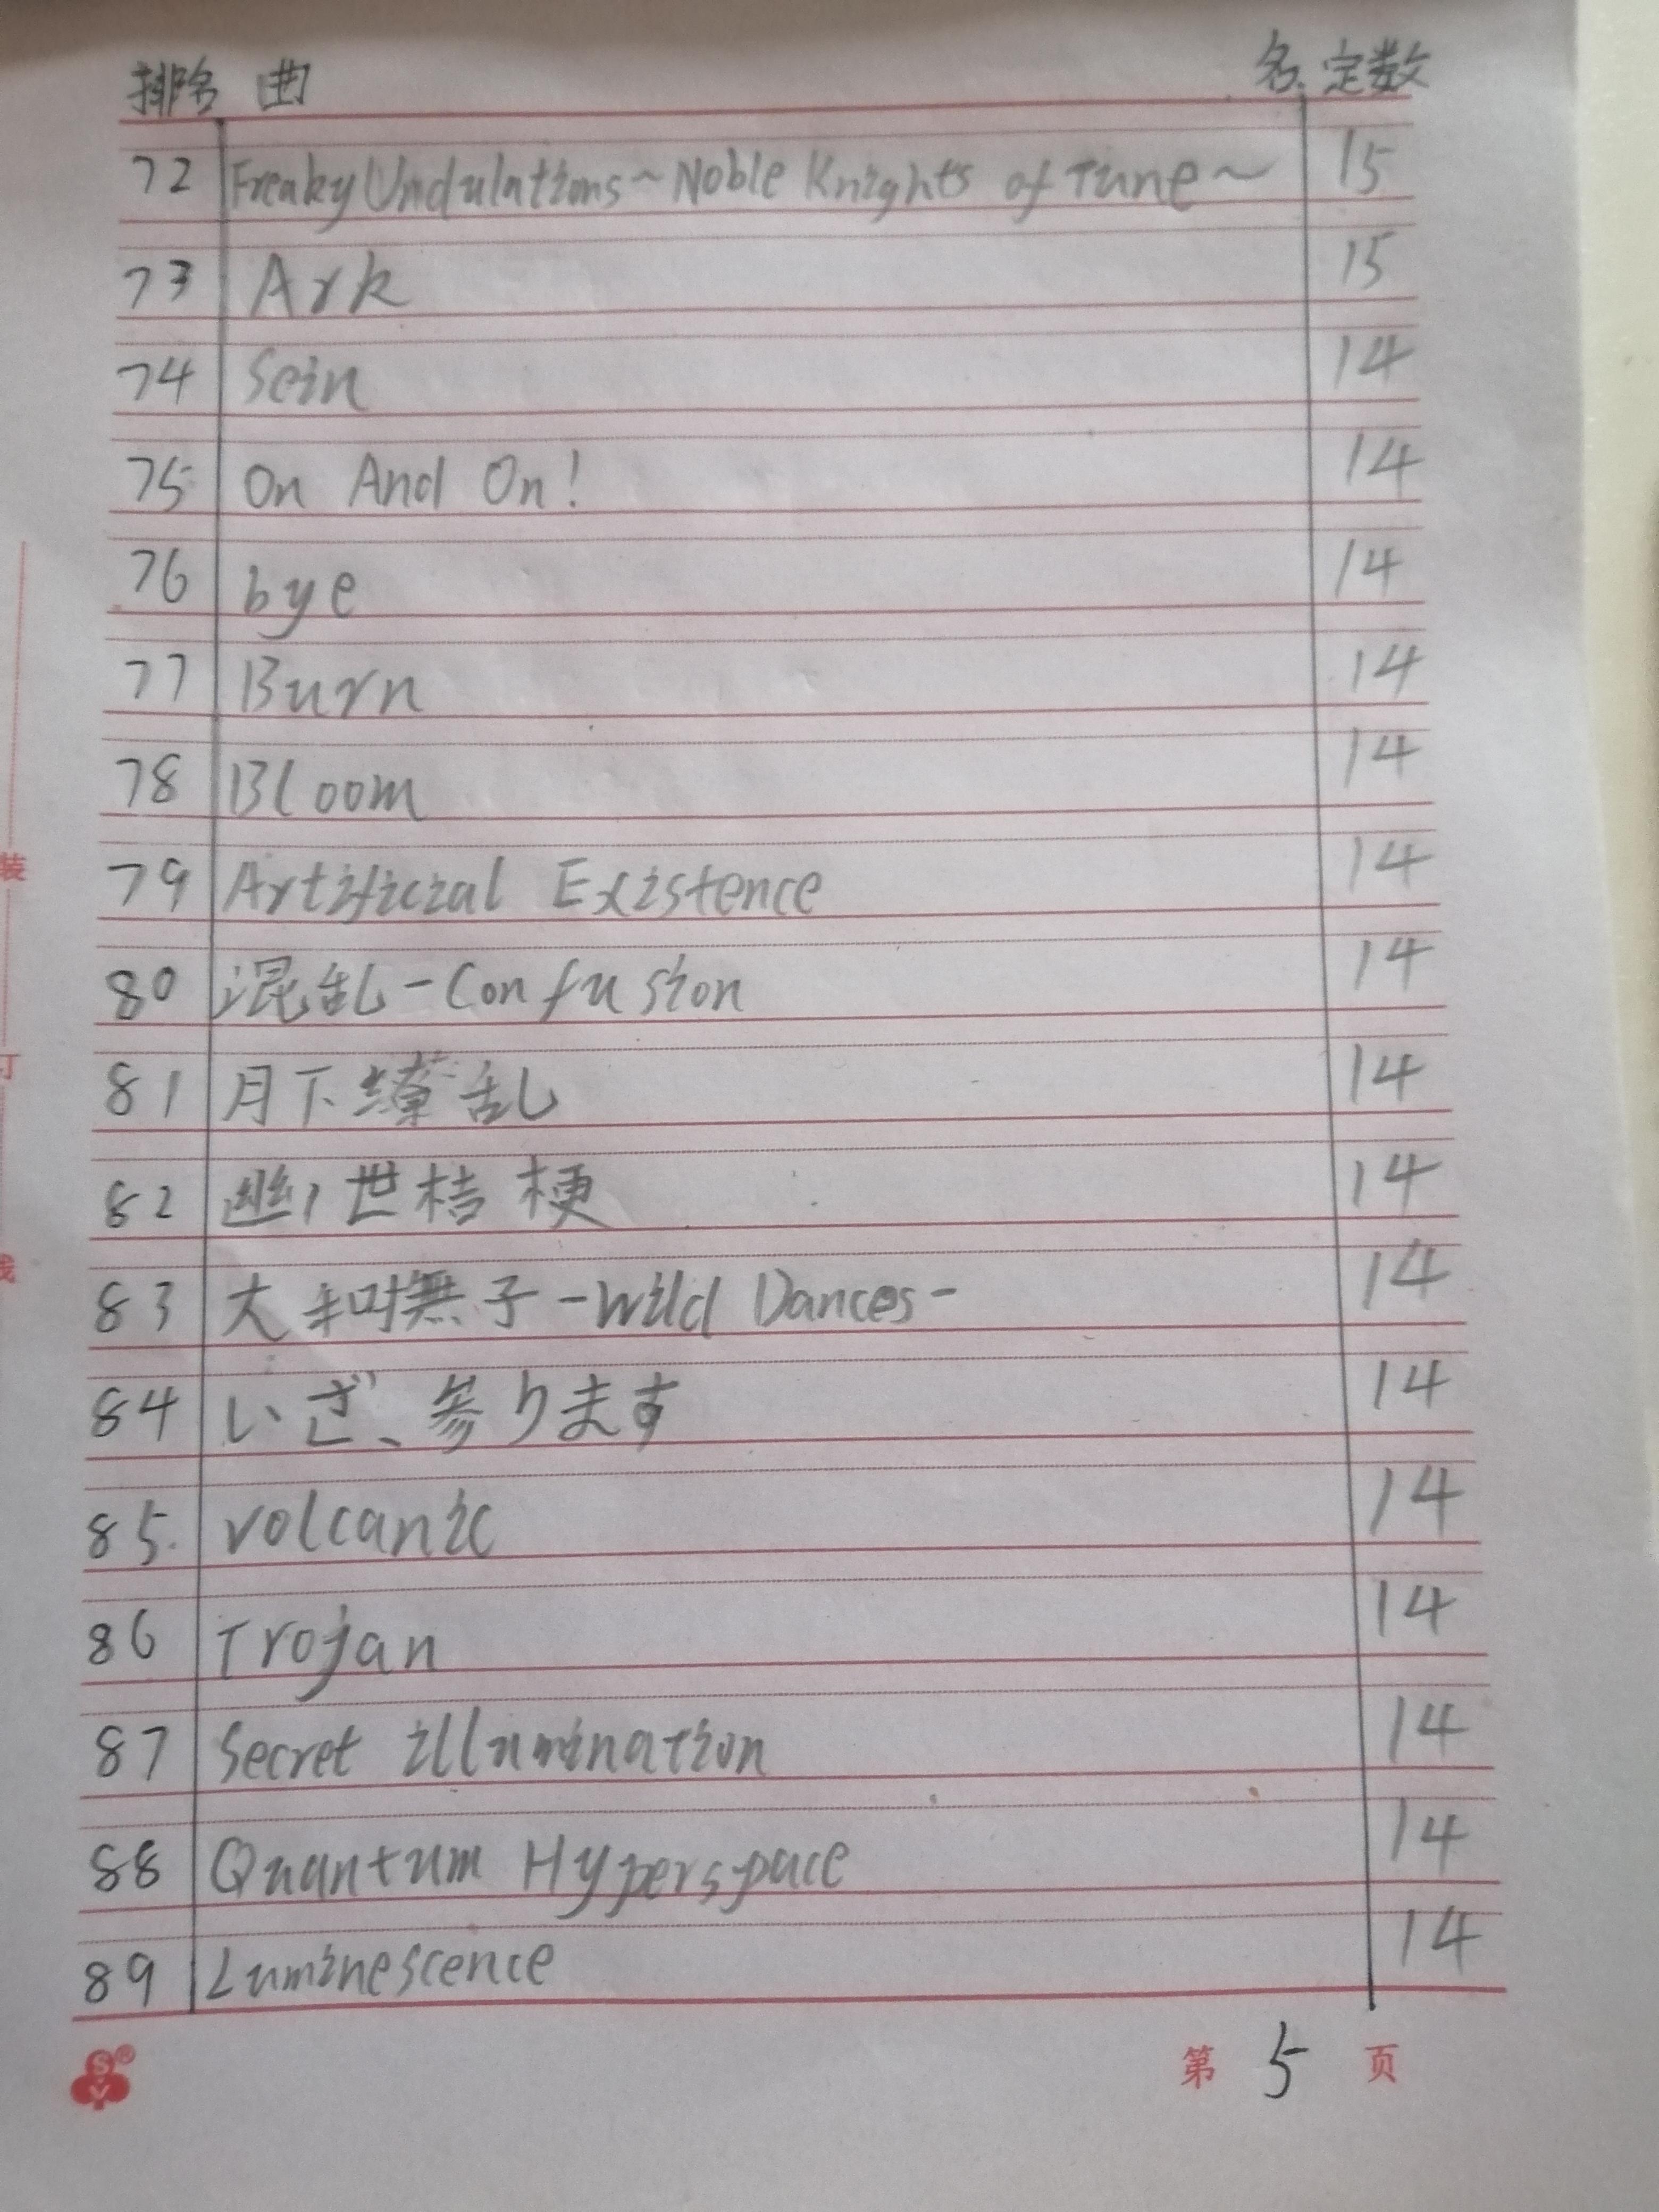 排名 曲 名 定数
72 Freaky Undulations~Noble Knights of Tune~ 15
73 Ark 15
74 Sein 14
75 On And On! 14
76 bye 14
77 Burn 14
78 Bloom 14
79 Artificial Existence 14
80 混乱-Confusion 14
81 月下缭乱 14
82 幽世桔梗 14
83 大和撫子-Wild Dances- 14
84 いざ、参ります 14
85. volcanic 14
86 Trojan 14
87 Secret illumination 14
88 Quantum Hyperspace 14
89 Luminescence 14
第 5 页
装
订
线